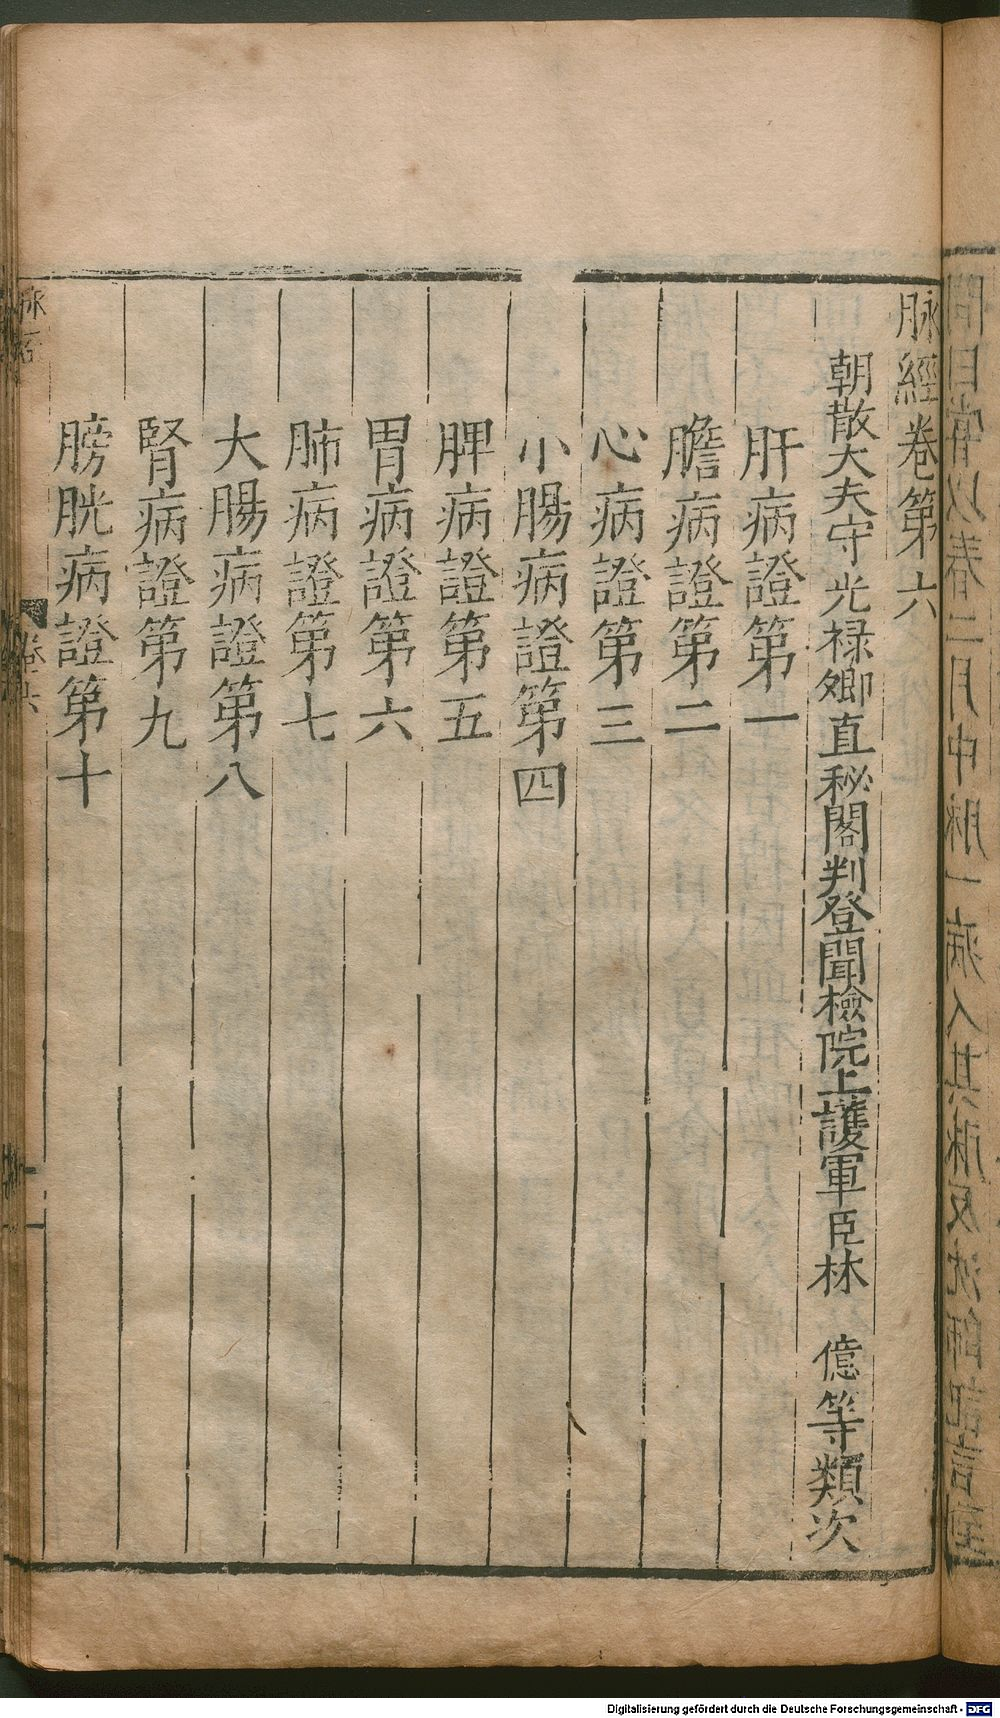 脉經卷第六
朝散大夫守光禄卿直秘閣判登聞檢院上護軍臣林　億等類次
肝病證第一
膽病證第二
心病證第三
小腸病證第四
脾病證第五
胃病證第六
肺病證第七
大腸病證第八
腎病證第九
膀胱病證第十
Digitalisierung gefördert durch die Deutsche Forschungsgemeinschaft - DFG